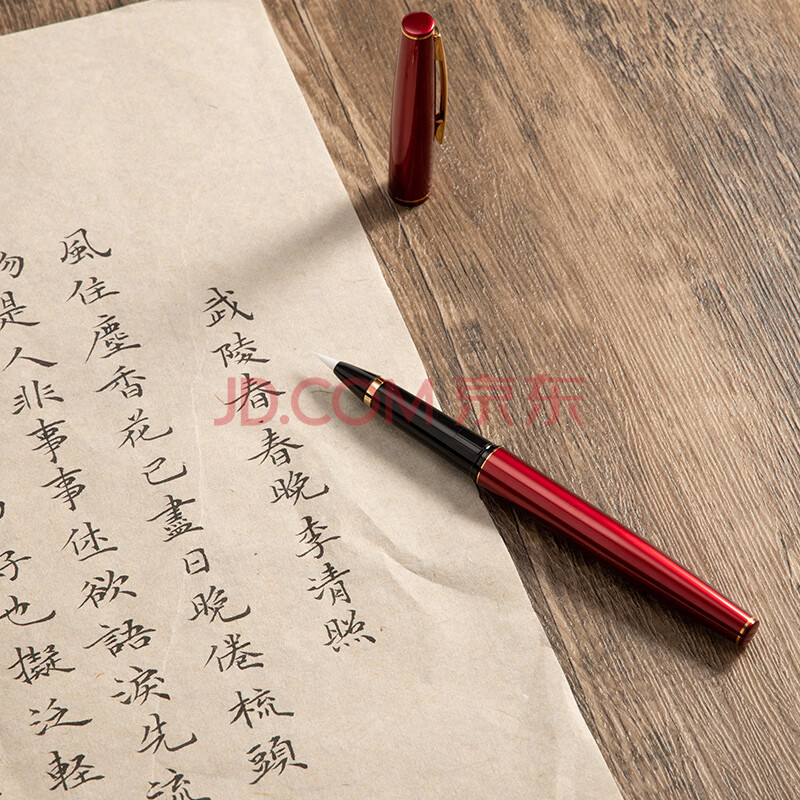 武陵春·春晚李清照
風住塵香花已盡日晚倦梳頭
物是人非事事休欲語淚先流
好也擬泛軽
JD.COM 京东